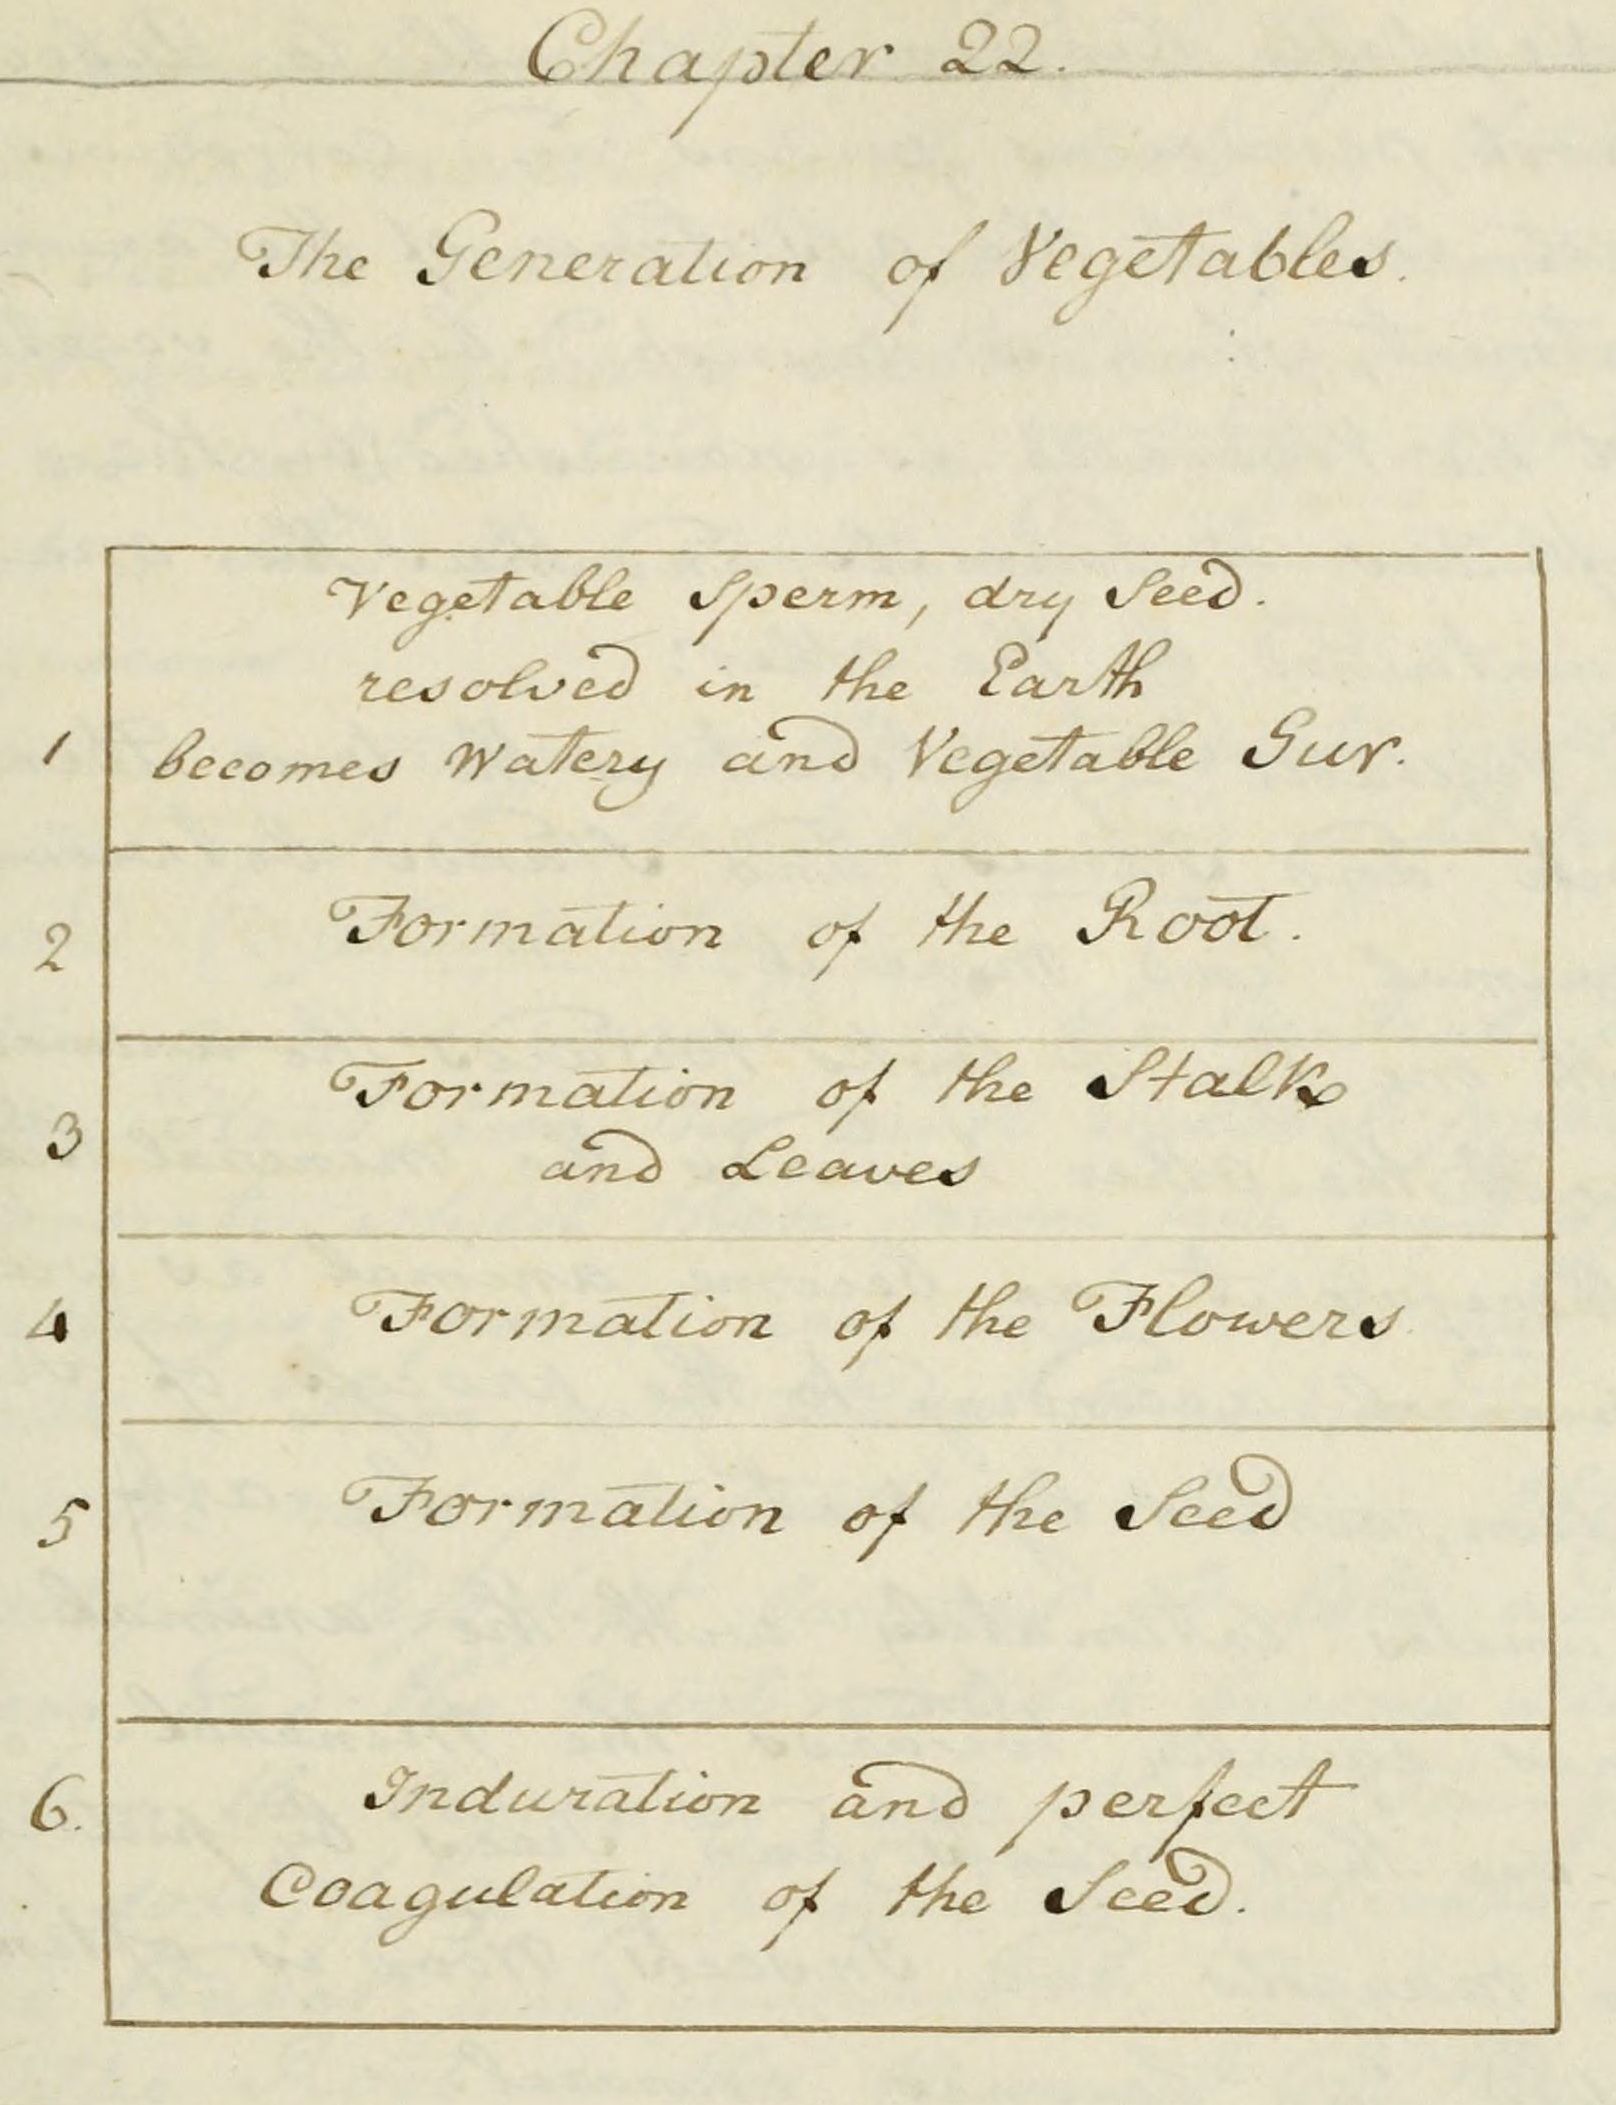 Chapter 22.
The Generation of Vegetables.
Vegetable Sperm, dry Seed.
resolved in the Earth
1 becomes Watery and Vegetable Gur.
2 Formation of the Root.
Formation of the Stalk
3 and Leaves
4 Formation of the Flowers
5 Formation of the Seed
6. Induration and perfect
Coagulation of the Seed.